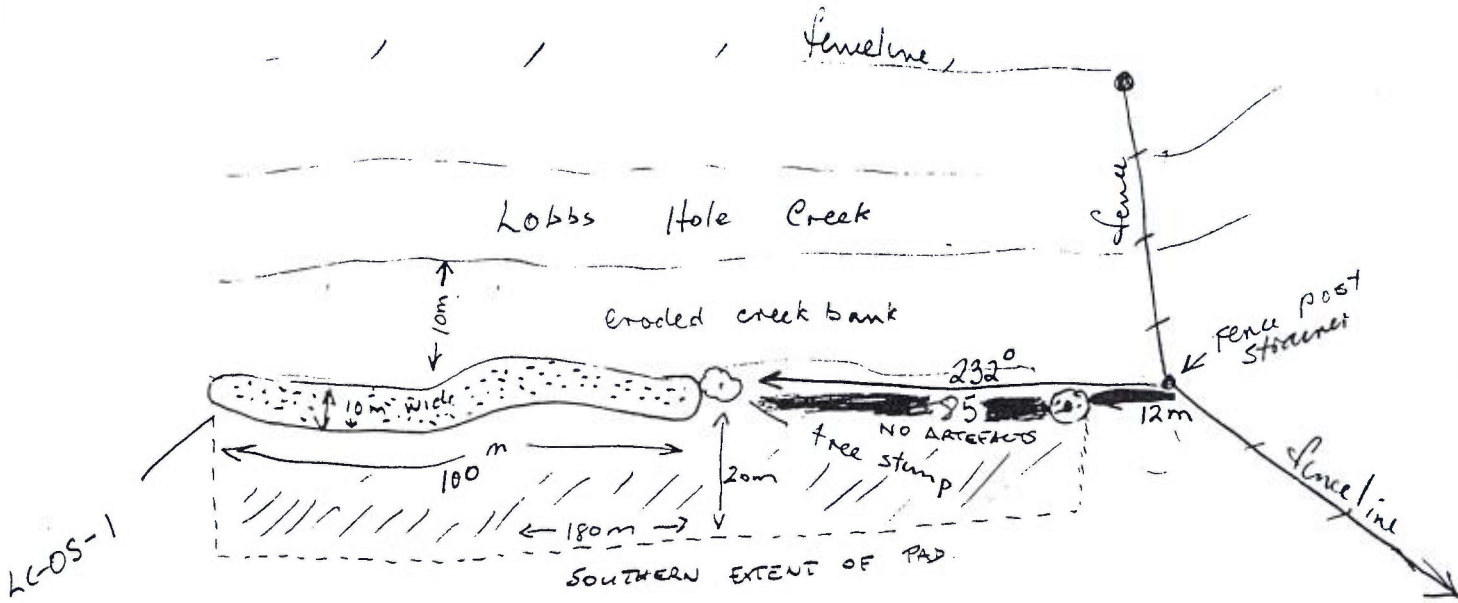 fenceline
fence
Lobbs Hole Creek
10m
eroded creek bank
Fence post
strainer
232°
10m wide
85
12m
NO ARTEFACTS
tree stump
100 m
20m
fenceline
180m
LC-OS-1
SOUTHERN EXTENT OF PAD.